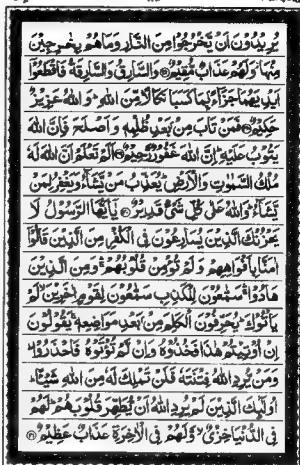 يُرِيدُونَ أَنْ يَّخْرُجُوا مِنَ النَّارِ وَمَا هُمْ بِخٰرِجِيْنَ
مِنْهَا وَلَهُمْ عَذَابٌ مُّقِيْمٌ ۝ وَالسَّارِقُ وَالسَّارِقَةُ فَاقْطَعُوْٓا
اَيْدِيَهُمَا جَزَآءًۢ بِمَا كَسَبَا نَكَالًا مِّنَ اللّٰهِ ؕ وَاللّٰهُ عَزِيْزٌ
حَكِيْمٌ ۝ فَمَنْ تَابَ مِنْۢ بَعْدِ ظُلْمِهٖ وَاَصْلَحَ فَاِنَّ اللّٰهَ
يَتُوْبُ عَلَيْهِ ؕ اِنَّ اللّٰهَ غَفُوْرٌ رَّحِيْمٌ ۝ اَلَمْ تَعْلَمْ اَنَّ اللّٰهَ لَهٗ
مُلْكُ السَّمٰوٰتِ وَالْاَرْضِ ؕ يُعَذِّبُ مَنْ يَّشَآءُ وَيَغْفِرُ لِمَنْ
يَّشَآءُ ؕ وَاللّٰهُ عَلٰى كُلِّ شَيْءٍ قَدِيْرٌ ۝ يٰٓاَيُّهَا الرَّسُوْلُ لَا
يَحْزُنْكَ الَّذِيْنَ يُسَارِعُوْنَ فِي الْكُفْرِ مِنَ الَّذِيْنَ قَالُوْٓا
اٰمَنَّا بِاَفْوَاهِهِمْ وَلَمْ تُؤْمِنْ قُلُوْبُهُمْ ۛ وَمِنَ الَّذِيْنَ
هَادُوْا ۛ سَمّٰعُوْنَ لِلْكَذِبِ سَمّٰعُوْنَ لِقَوْمٍ اٰخَرِيْنَ ۙ لَمْ
يَاْتُوْكَ ؕ يُحَرِّفُوْنَ الْكَلِمَ مِنْۢ بَعْدِ مَوَاضِعِهٖ ۚ يَقُوْلُوْنَ
اِنْ اُوْتِيْتُمْ هٰذَا فَخُذُوْهُ وَاِنْ لَّمْ تُؤْتَوْهُ فَاحْذَرُوْا ؕ
وَمَنْ يُّرِدِ اللّٰهُ فِتْنَتَهٗ فَلَنْ تَمْلِكَ لَهٗ مِنَ اللّٰهِ شَيْـًٔا ؕ
اُولٰٓئِكَ الَّذِيْنَ لَمْ يُرِدِ اللّٰهُ اَنْ يُّطَهِّرَ قُلُوْبَهُمْ ؕ لَهُمْ
فِي الدُّنْيَا خِزْيٌ ۚ وَّلَهُمْ فِي الْاٰخِرَةِ عَذَابٌ عَظِيْمٌ ۝